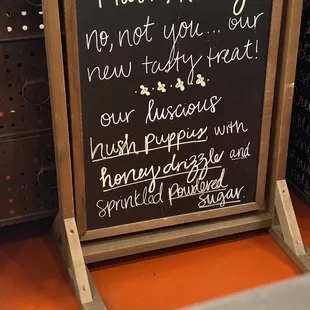 no, not you... our
new tasty treat!
our luscious
hush puppies with
honey drizzle and
sprinkled powdered
sugar.